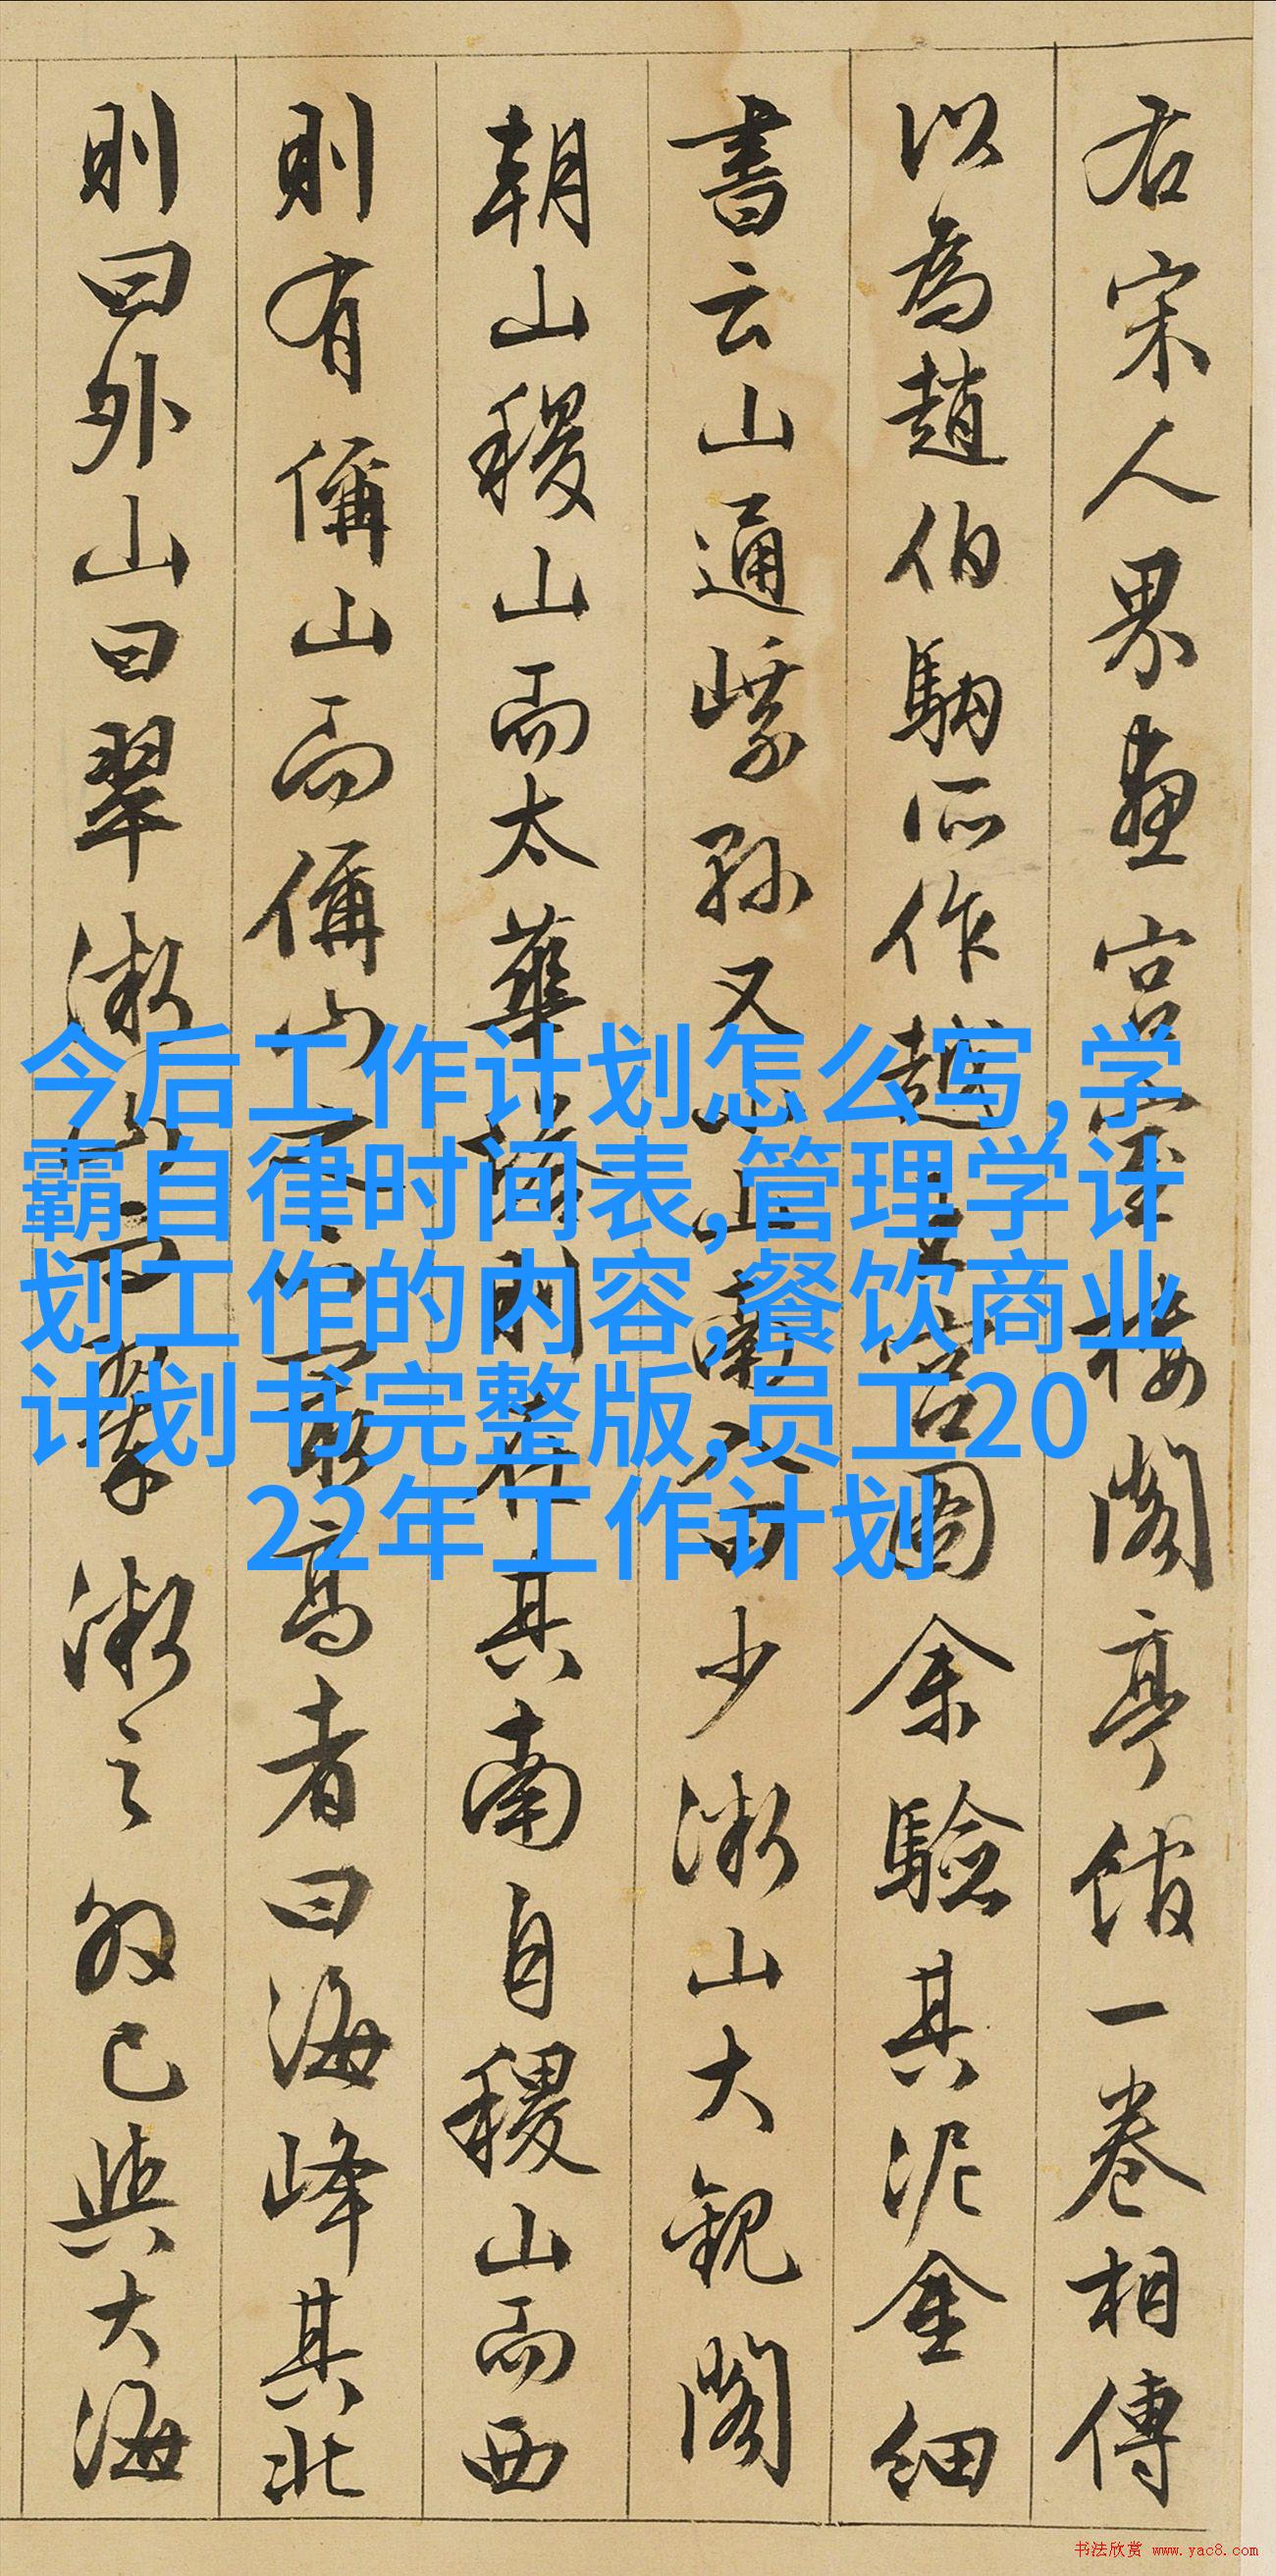 右宋人界畫宮室樓閣亭館一卷相傳
以為趙伯駒所作越王宮圖余驗其泥金細
書云山通
又山止南入曰少漱山大觀閣
朝山稷山而太華
其南自稷山而西
則有偁山而偁山
最高者曰海峰其北
則曰外山曰翠漱
漱之
已與大海
今后工作计划怎么写,学
霸自律时间表,管理学计
划工作的内容,餐饮商业
计划书完整版,员工20
22年工作计划
书法欣赏 www.yac8.com